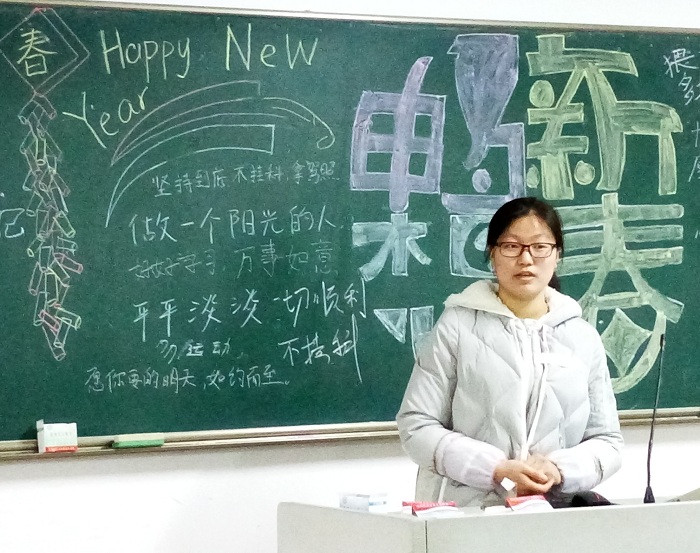 春
Happy New
Year
坚持到底,不挂科,拿驾照
做一个阳光的人
好好学习,万事如意
平平淡淡一切顺利
多运动,
不挂科
愿你要的明天,如约而至。
新春
记